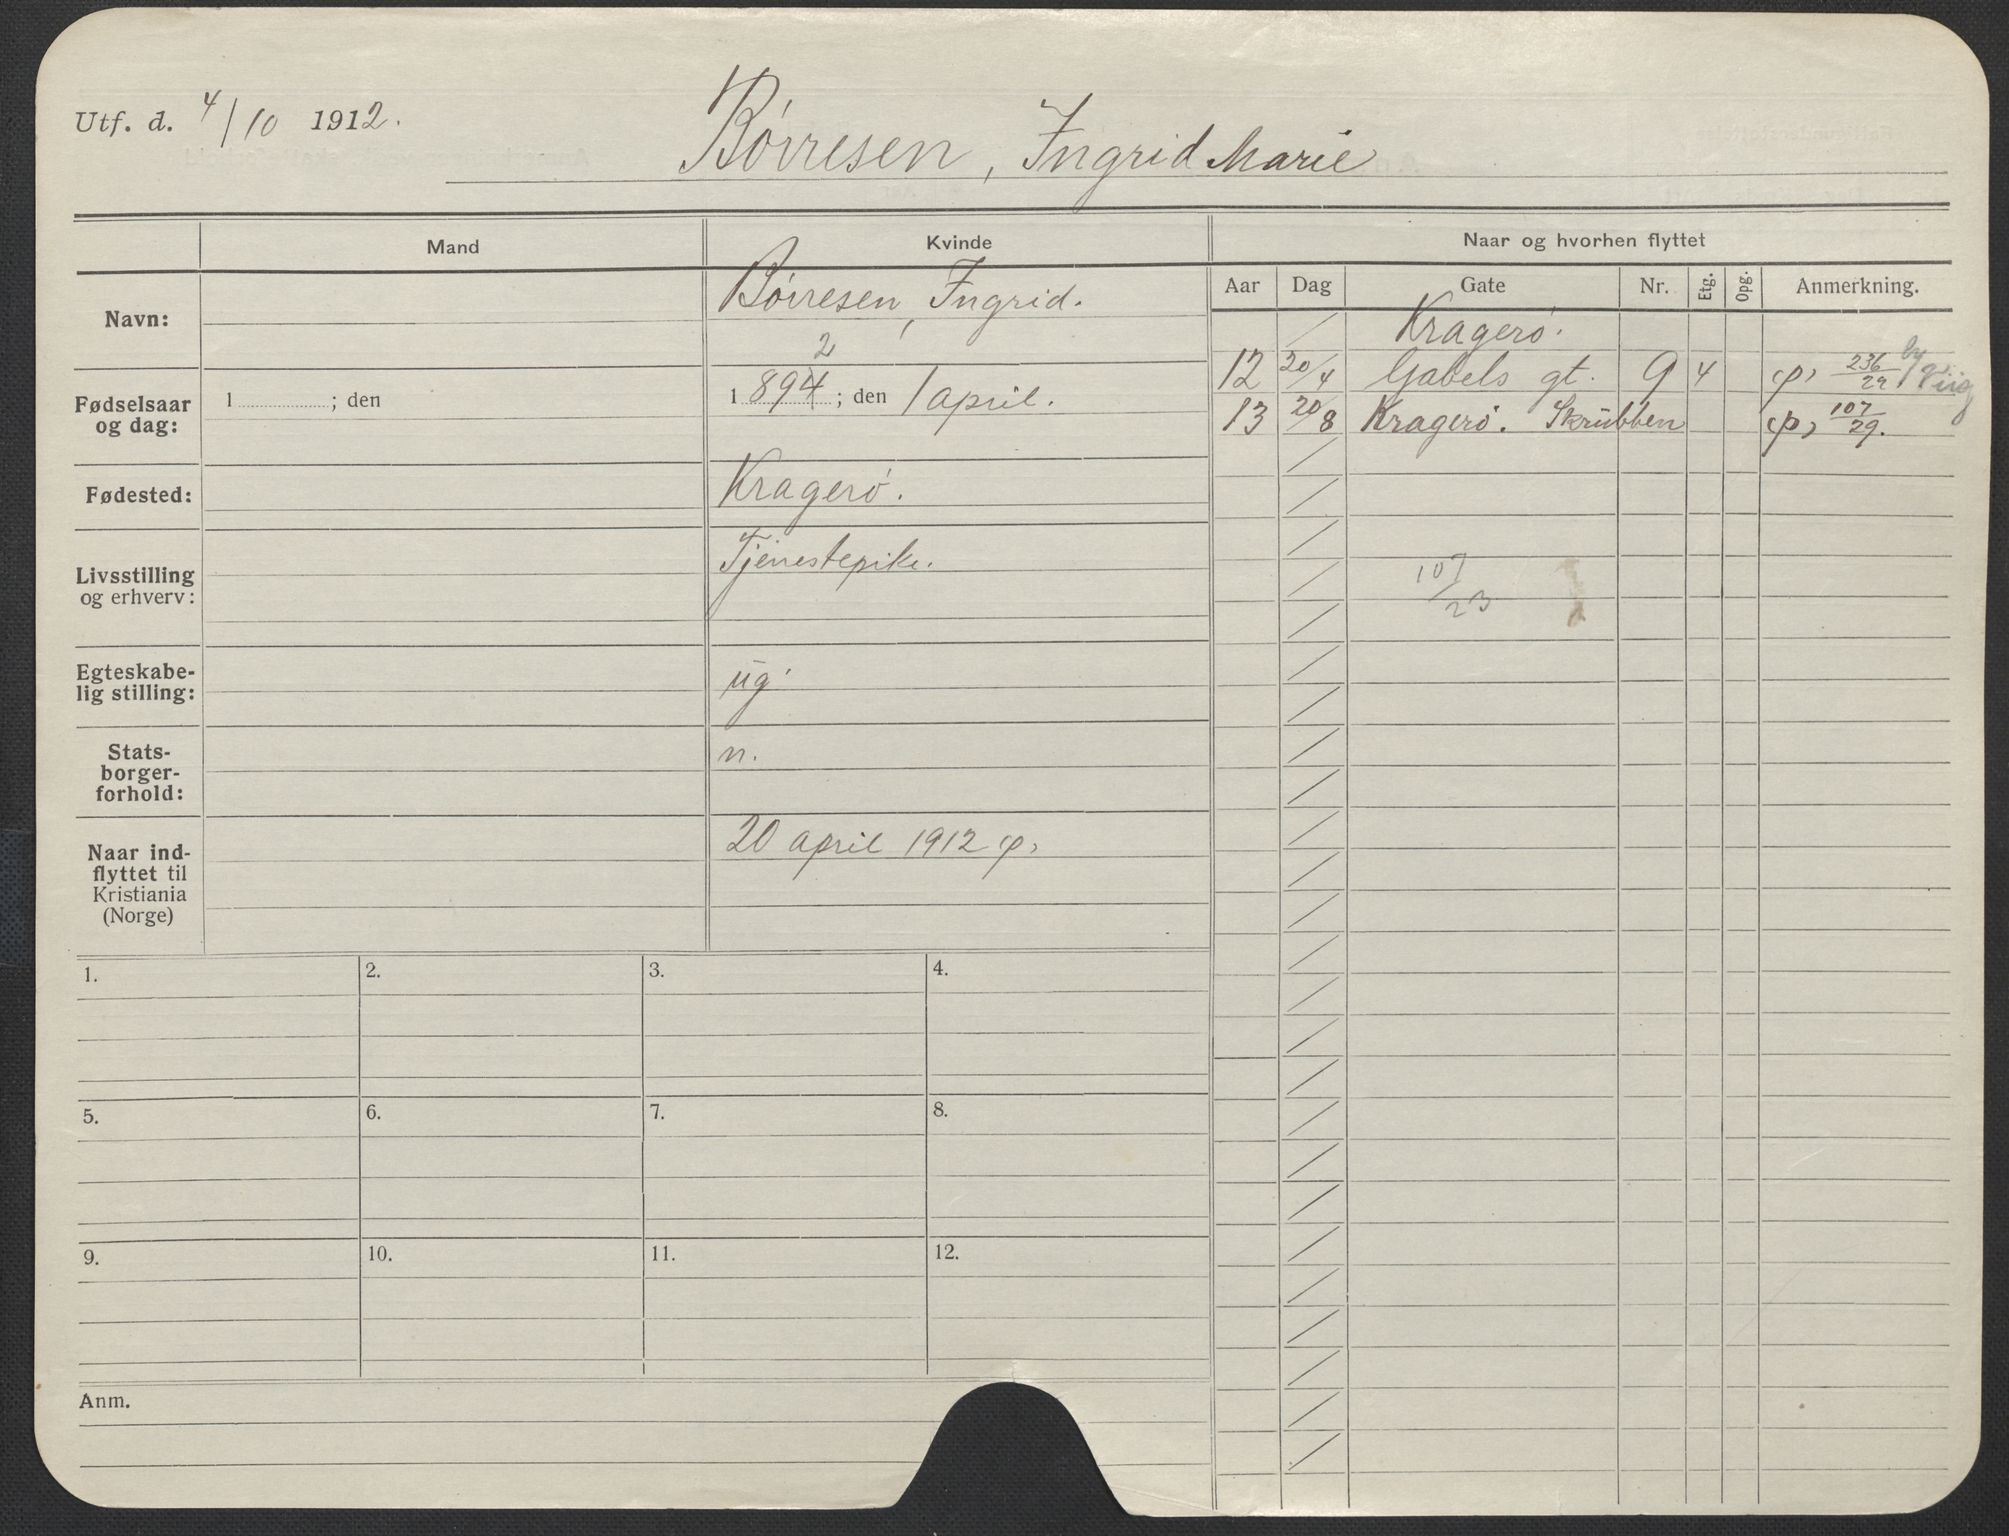 Utf. d. 4/10 1912.
Børresen, Ingrid Marie
Mand
Kvinde
Naar og hvorhen flyttet
Aar Dag Gate Nr. Etg. Opg. Anmerkning.
Navn:
Børresen, Ingrid.
Fødselsaar og dag:
1 ; den
2
1 894 ; den 1 april.
Fødested:
Kragerø.
Livsstilling og erhverv:
Tjenestepike.
Egteskabelig stilling:
ug
Statsborgerforhold:
n.
Naar indflyttet til Kristiania (Norge)
20 april 1912 φ,
Kragerø.
12 20/4 Gabels gt. 9 4 φ, 236/22
13 20/8 Kragerø. Skrubben φ, 107/29.
107/23
1. 2. 3. 4.
5. 6. 7. 8.
9. 10. 11. 12.
Anm.